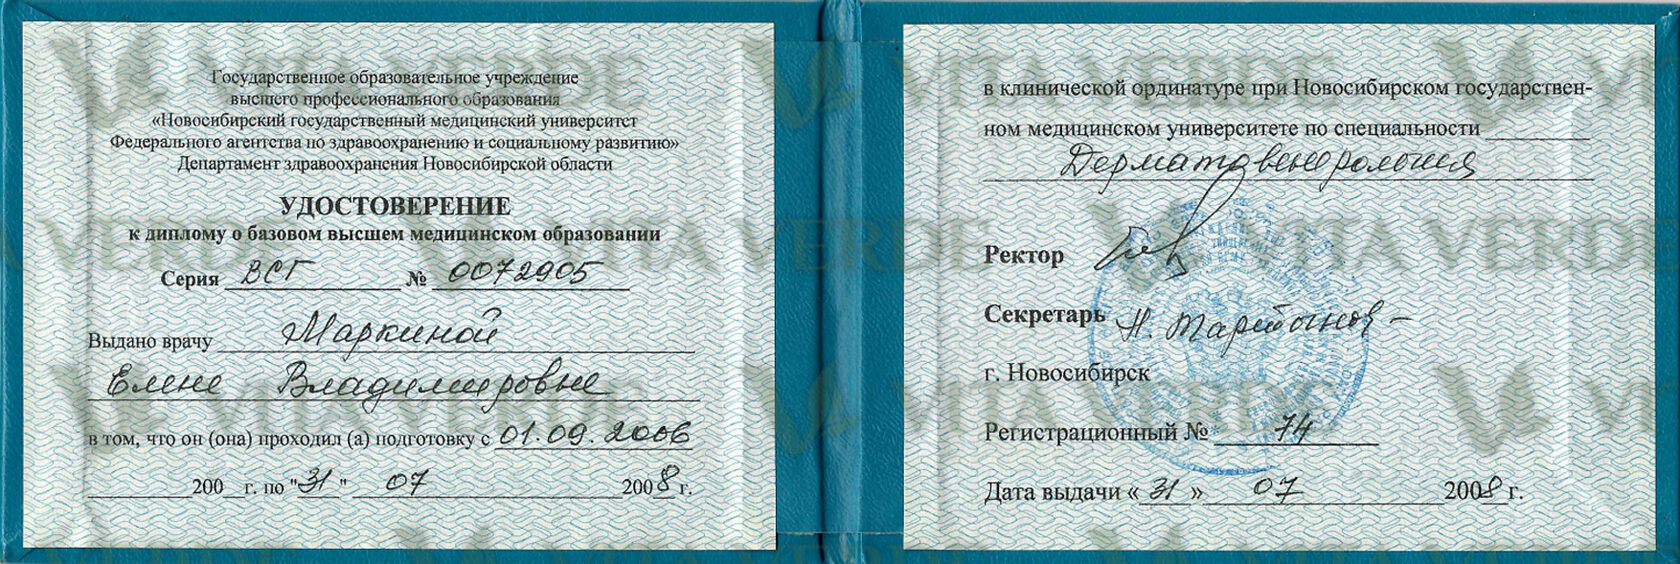 Государственное образовательное учреждение
высшего профессионального образования
«Новосибирский государственный медицинский университет
Федерального агентства по здравоохранению и социальному развитию»
Департамент здравоохранения Новосибирской области
УДОСТОВЕРЕНИЕ
к диплому о базовом высшем медицинском образовании
Серия ВСГ № 0072905
Выдано врачу Маркиной
Елене Владимировне
в том, что он (она) проходил (а) подготовку с 01.09.2006
200 г. по "31" 07 2008 г.
в клинической ординатуре при Новосибирском государствен-
ном медицинском университете по специальности
Дерматовенерология
Ректор
Секретарь Н. Мартынов
г. Новосибирск
Регистрационный № 74
Дата выдачи «31» 07 2008 г.
VITA VERDE